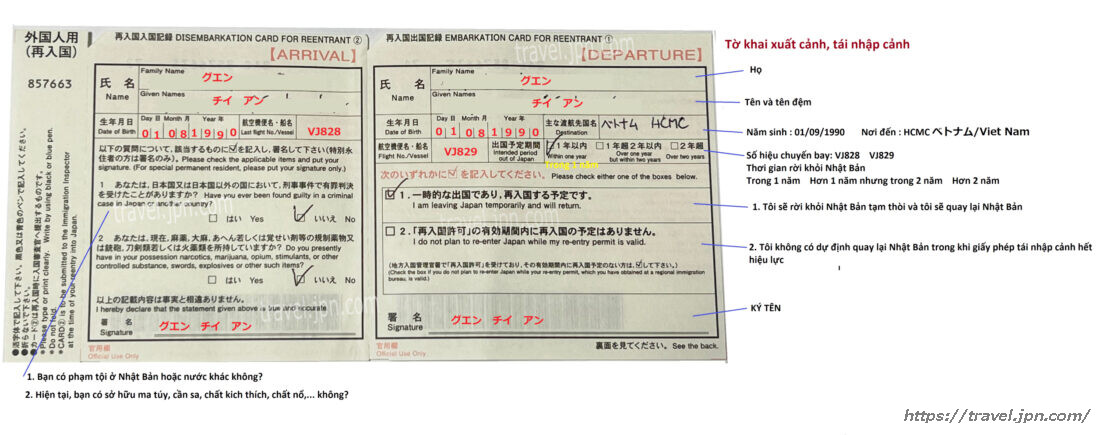 外国人用
(再入国)
857663
●活字体で記入して下さい。黒色又は青色のペンで記入して下さい。
●折らないで下さい。
●カード②は再入国時に入国審査官へ提出するものです。
●Please type or print clearly. Write by using black or blue pen.
●Do not fold.
●CARD② is to be submitted to the Immigration Inspector
at the time of your reentry into Japan.
再入国入国記録 DISEMBARKATION CARD FOR REENTRANT ②
【ARRIVAL】
氏 名
Name
Family Name
グエン
Given Names
チイ アン
生年月日
Date of Birth
Day 日 Month 月 Year 年
0 1 0 8 1 9 9 0
航空機便名・船名
Last flight No./Vessel
VJ828
以下の質問について、該当するものに☑を記入し、署名して下さい(特別永
住者の方は署名のみ)。Please check the applicable items and put your
signature. (For special permanent resident, please put your signature only.)
1 あなたは、日本国又は日本国以外の国において、刑事事件で有罪判決
を受けたことがありますか? Have you ever been found guilty in a criminal
case in Japan or another country?
□ はい Yes ☑ いいえ No
2 あなたは、現在、麻薬、大麻、あへん若しくは覚せい剤等の規制薬物又
は銃砲、刀剣類若しくは火薬類を所持していますか? Do you presently
have in your possession narcotics, marijuana, opium, stimulants, or other
controlled substance, swords, explosives or other such items?
□ はい Yes ☑ いいえ No
以上の記載内容は事実と相違ありません。
I hereby declare that the statement given above is true and accurate
署 名
Signature
グエン チイ アン
官用欄
Official Use Only
再入国出国記録 EMBARKATION CARD FOR REENTRANT ①
【DEPARTURE】
氏 名
Name
Family Name
グエン
Given Names
チイ アン
生年月日
Date of Birth
Day 日 Month 月 Year 年
0 1 0 8 1 9 9 0
主な渡航先国名
Destination
ベトナム HCMC
航空機便名・船名
Flight No./Vessel
VJ829
出国予定期間
Intended period
out of Japan
☑1年以内
Within one year
□1年超2年以内
Over one year
but within two years
□2年超
Over two years
次のいずれかに☑を記入してください。Please check either one of the boxes below.
☑ 1. 一時的な出国であり、再入国する予定です。
I am leaving Japan temporarily and will return.
□ 2. 「再入国許可」の有効期間内に再入国の予定はありません。
I do not plan to re-enter Japan while my re-entry permit is valid.
(地方入国管理官署で「再入国許可」を受けており、その有効期間内に再入国予定のない方は、☑して下さい。)
(Check the box if you do not plan to re-enter Japan while your re-entry permit, which you have obtained at a regional immigration
bureau, is valid.)
署 名
Signature
グエン チイ アン
官用欄
Official Use Only
裏面を見てください。 See the back.
Tờ khai xuất cảnh, tái nhập cảnh
Họ
Tên và tên đệm
Năm sinh : 01/09/1990 Nơi đến : HCMC ベトナム/Viet Nam
Số hiệu chuyến bay: VJ828 VJ829
Thơi gian rời khỏi Nhật Bản
Trong 1 năm Hơn 1 năm nhưng trong 2 năm Hơn 2 năm
1. Tôi sẽ rời khỏi Nhật Bản tạm thời và tôi sẽ quay lại Nhật Bản
2. Tôi không có dự định quay lại Nhật Bản trong khi giấy phép tái nhập cảnh hết
hiệu lực
KÝ TÊN
1. Bạn có phạm tội ở Nhật Bản hoặc nước khác không?
2. Hiện tại, bạn có sở hữu ma túy, cần sa, chất kich thích, chất nổ,... không?
travel.jpn.com/
https://travel.jpn.com/